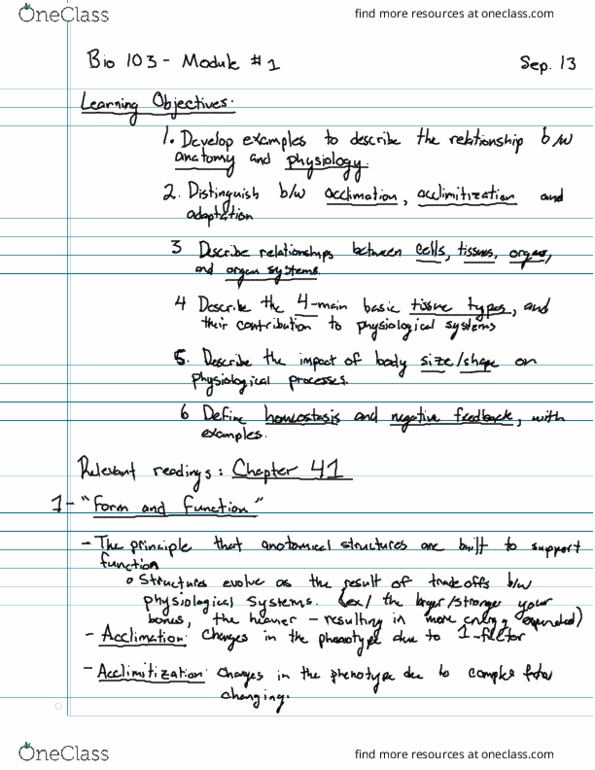 OneClass
find more resources at oneclass.com
Bio 103 - Module #1
Sep. 13
Learning Objectives:
1. Develop examples to describe the relationship b/w
anatomy and physiology.
2. Distinguish b/w acclimation, acclimitization and
adaptation
3 Describe relationships between cells, tissues, organs,
and organ systems.
4 Describe the 4-main basic tissue types, and
their contribution to physiological systems
5. Describe the impact of body size/shape on
physiological processes.
6 Define homeostasis and negative feedback, with
examples.
Relevant readings: Chapter 41
1- "Form and Function"
- The principle that anatomical structures are built to support
function
o Structures evolve as the result of tradeoffs b/w
physiological systems. (ex/ the larger/stronger your
bones, the heavier - resulting in more energy expended)
- Acclimation: changes in the phenotype due to 1-factor
- Acclimitization: changes in the phenotype due to complex
changing.
OneClass
find more resources at oneclass.com